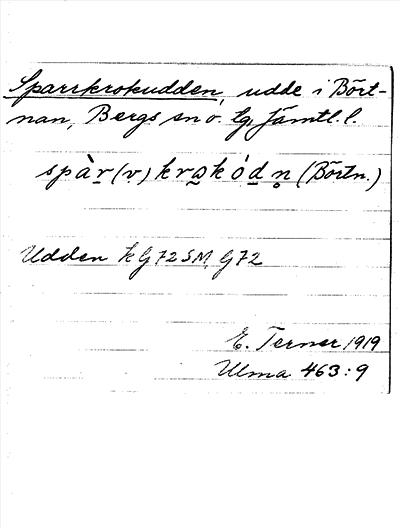 Sparrkrokudden, udde i Bört-
nan, Bergs sn o. tg, Jämtl. l.
spàr̲(v) kra̲kód̲n̥ (Börtn.)
Udden kG72SM, G72
E. Terner 1919
Ulma 463:9